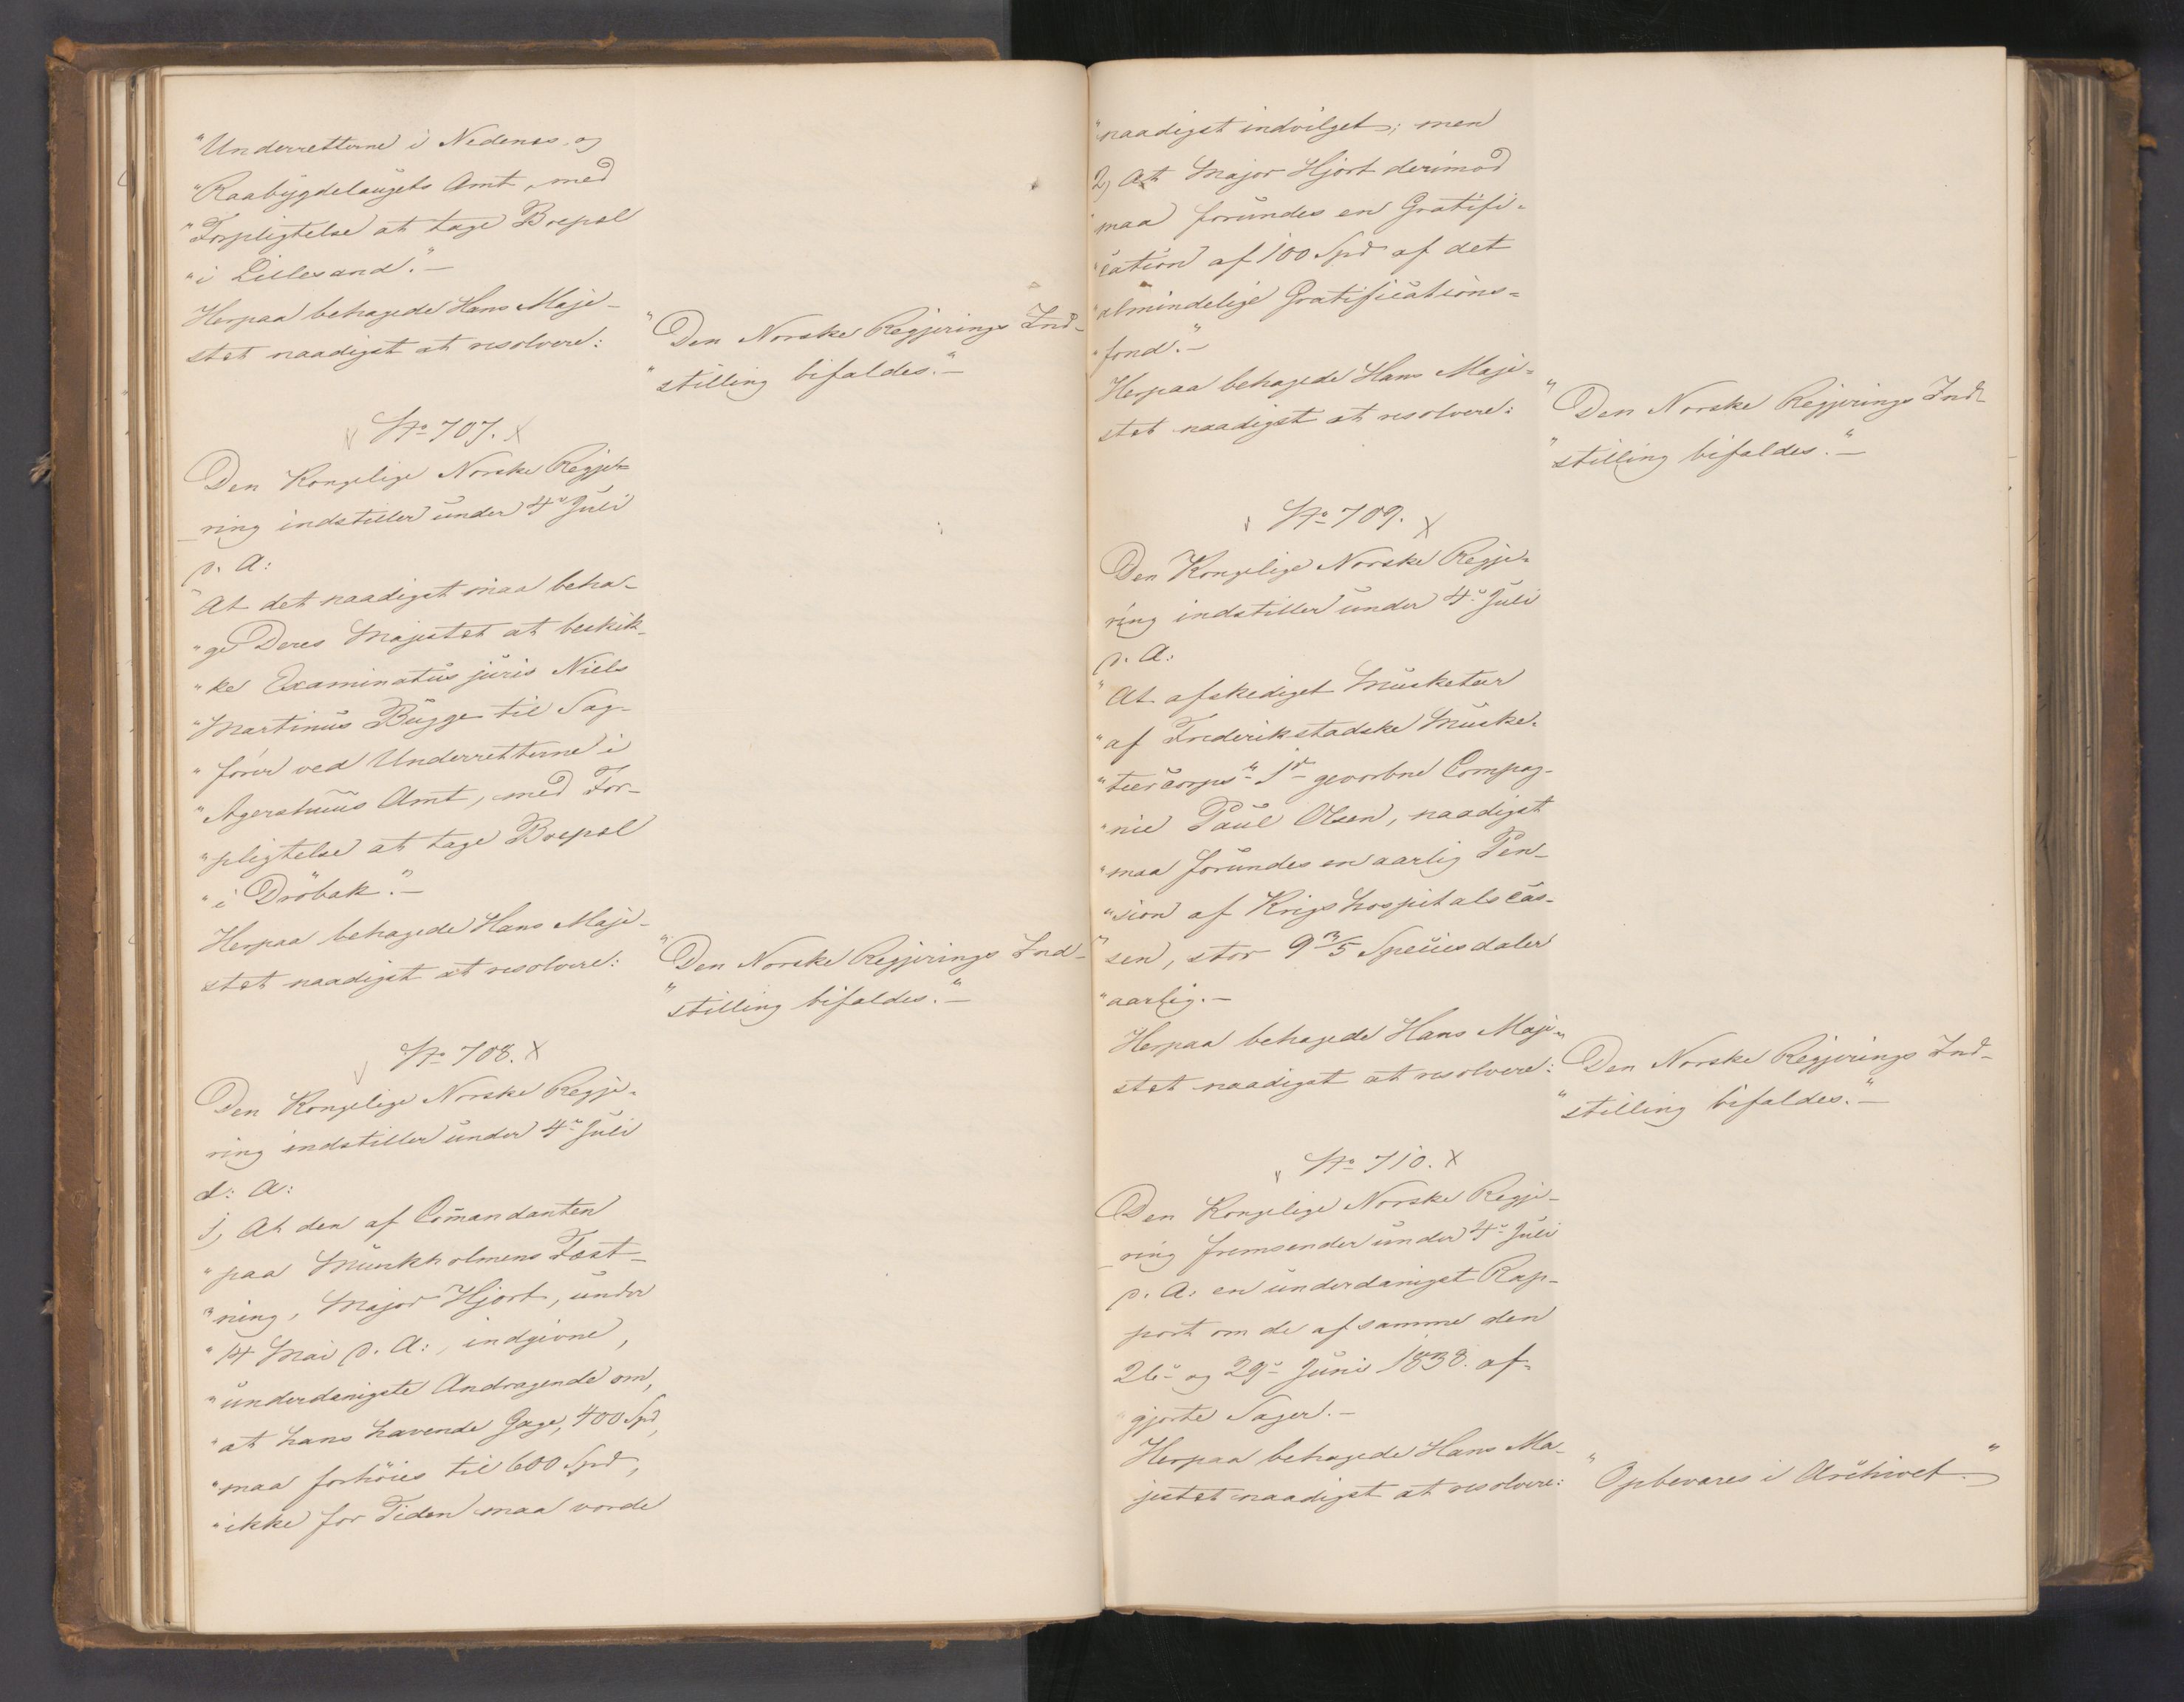 "Underretterne i Nedenes og
"Raabÿgdelaugets Amt, med
"Forpligtelse at tage Bopæl
"i Lillesand."—
Herpaa behagede Hans Maje-
stet naadigst at resolvere:
"Den Norske Regjerings Ind-
"stilling bifaldes."—
No 707. X
Den Kongelige Norske Regje-
ring indstiller under 4de Juli
d. A:
"At det naadigst maa beha-
"ge Deres Majestet at beskik-
"ke Examinatus juris Niels
"Martinus Bugge til Sag-
"förer ved Underretterne i
"Agershuus Amt, med For-
"pligtelse at tage Bopæl
"i Dröbak."—
Herpaa behagede Hans Maje-
stet naadigst at resolvere:
"Den Norske Regjerings Ind-
"stilling bifaldes."—
No 708. X
Den Kongelige Norske Regje-
ring indstiller under 4de Juli
d: A:
1, At den af Com̄andanten
"paa Munkholmens Fæst-
"ning, Major Hjort, under
"14 Mai d. A:, indgivne,
"underdanigste Andragende om,
"at hans havende Gage, 400 Spd,
"maa forhöies til 600 Spd,
"ikke for Tiden maa vorde
"naadigst indvilget; men
2, At Major Hjort derimod
"maa forundes en Gratifi-
"cation af 100 Spd af det
"almindelige Gratifications-
"fond."—
Herpaa behagede Hans Maje-
stet naadigst at resolvere:
"Den Norske Regjerings Ind-
"stilling bifaldes."—
No 709. X
Den Kongelige Norske Regje-
ring indstiller under 4de Juli
d. A:
"At afskediget Musketeer
"af Frederikstadske Muske-
"teercorps" 1ste gevorbne Compag-
"nie Paul Olsen, naadigst
"maa forundes en aarlig Pen-
"sion af Krigshospitalscas-
"sen, stor 9 3/5 Speciesdaler
"aarlig.—
Herpaa behagede Hans Maje-
stet naadigst at resolvere:
"Den Norske Regjerings Ind-
"stilling bifaldes."—
No 710. X
Den Kongelige Norske Regje-
ring fremsender under 4de Juli
d. A: en underdanigst Rap-
port om de af samme den
26de og 29de Juni 1838. af-
gjorte Sager.—
Herpaa behagede Hans Ma-
jestet naadigst at resolvere:
"Opbevares i Archivet."